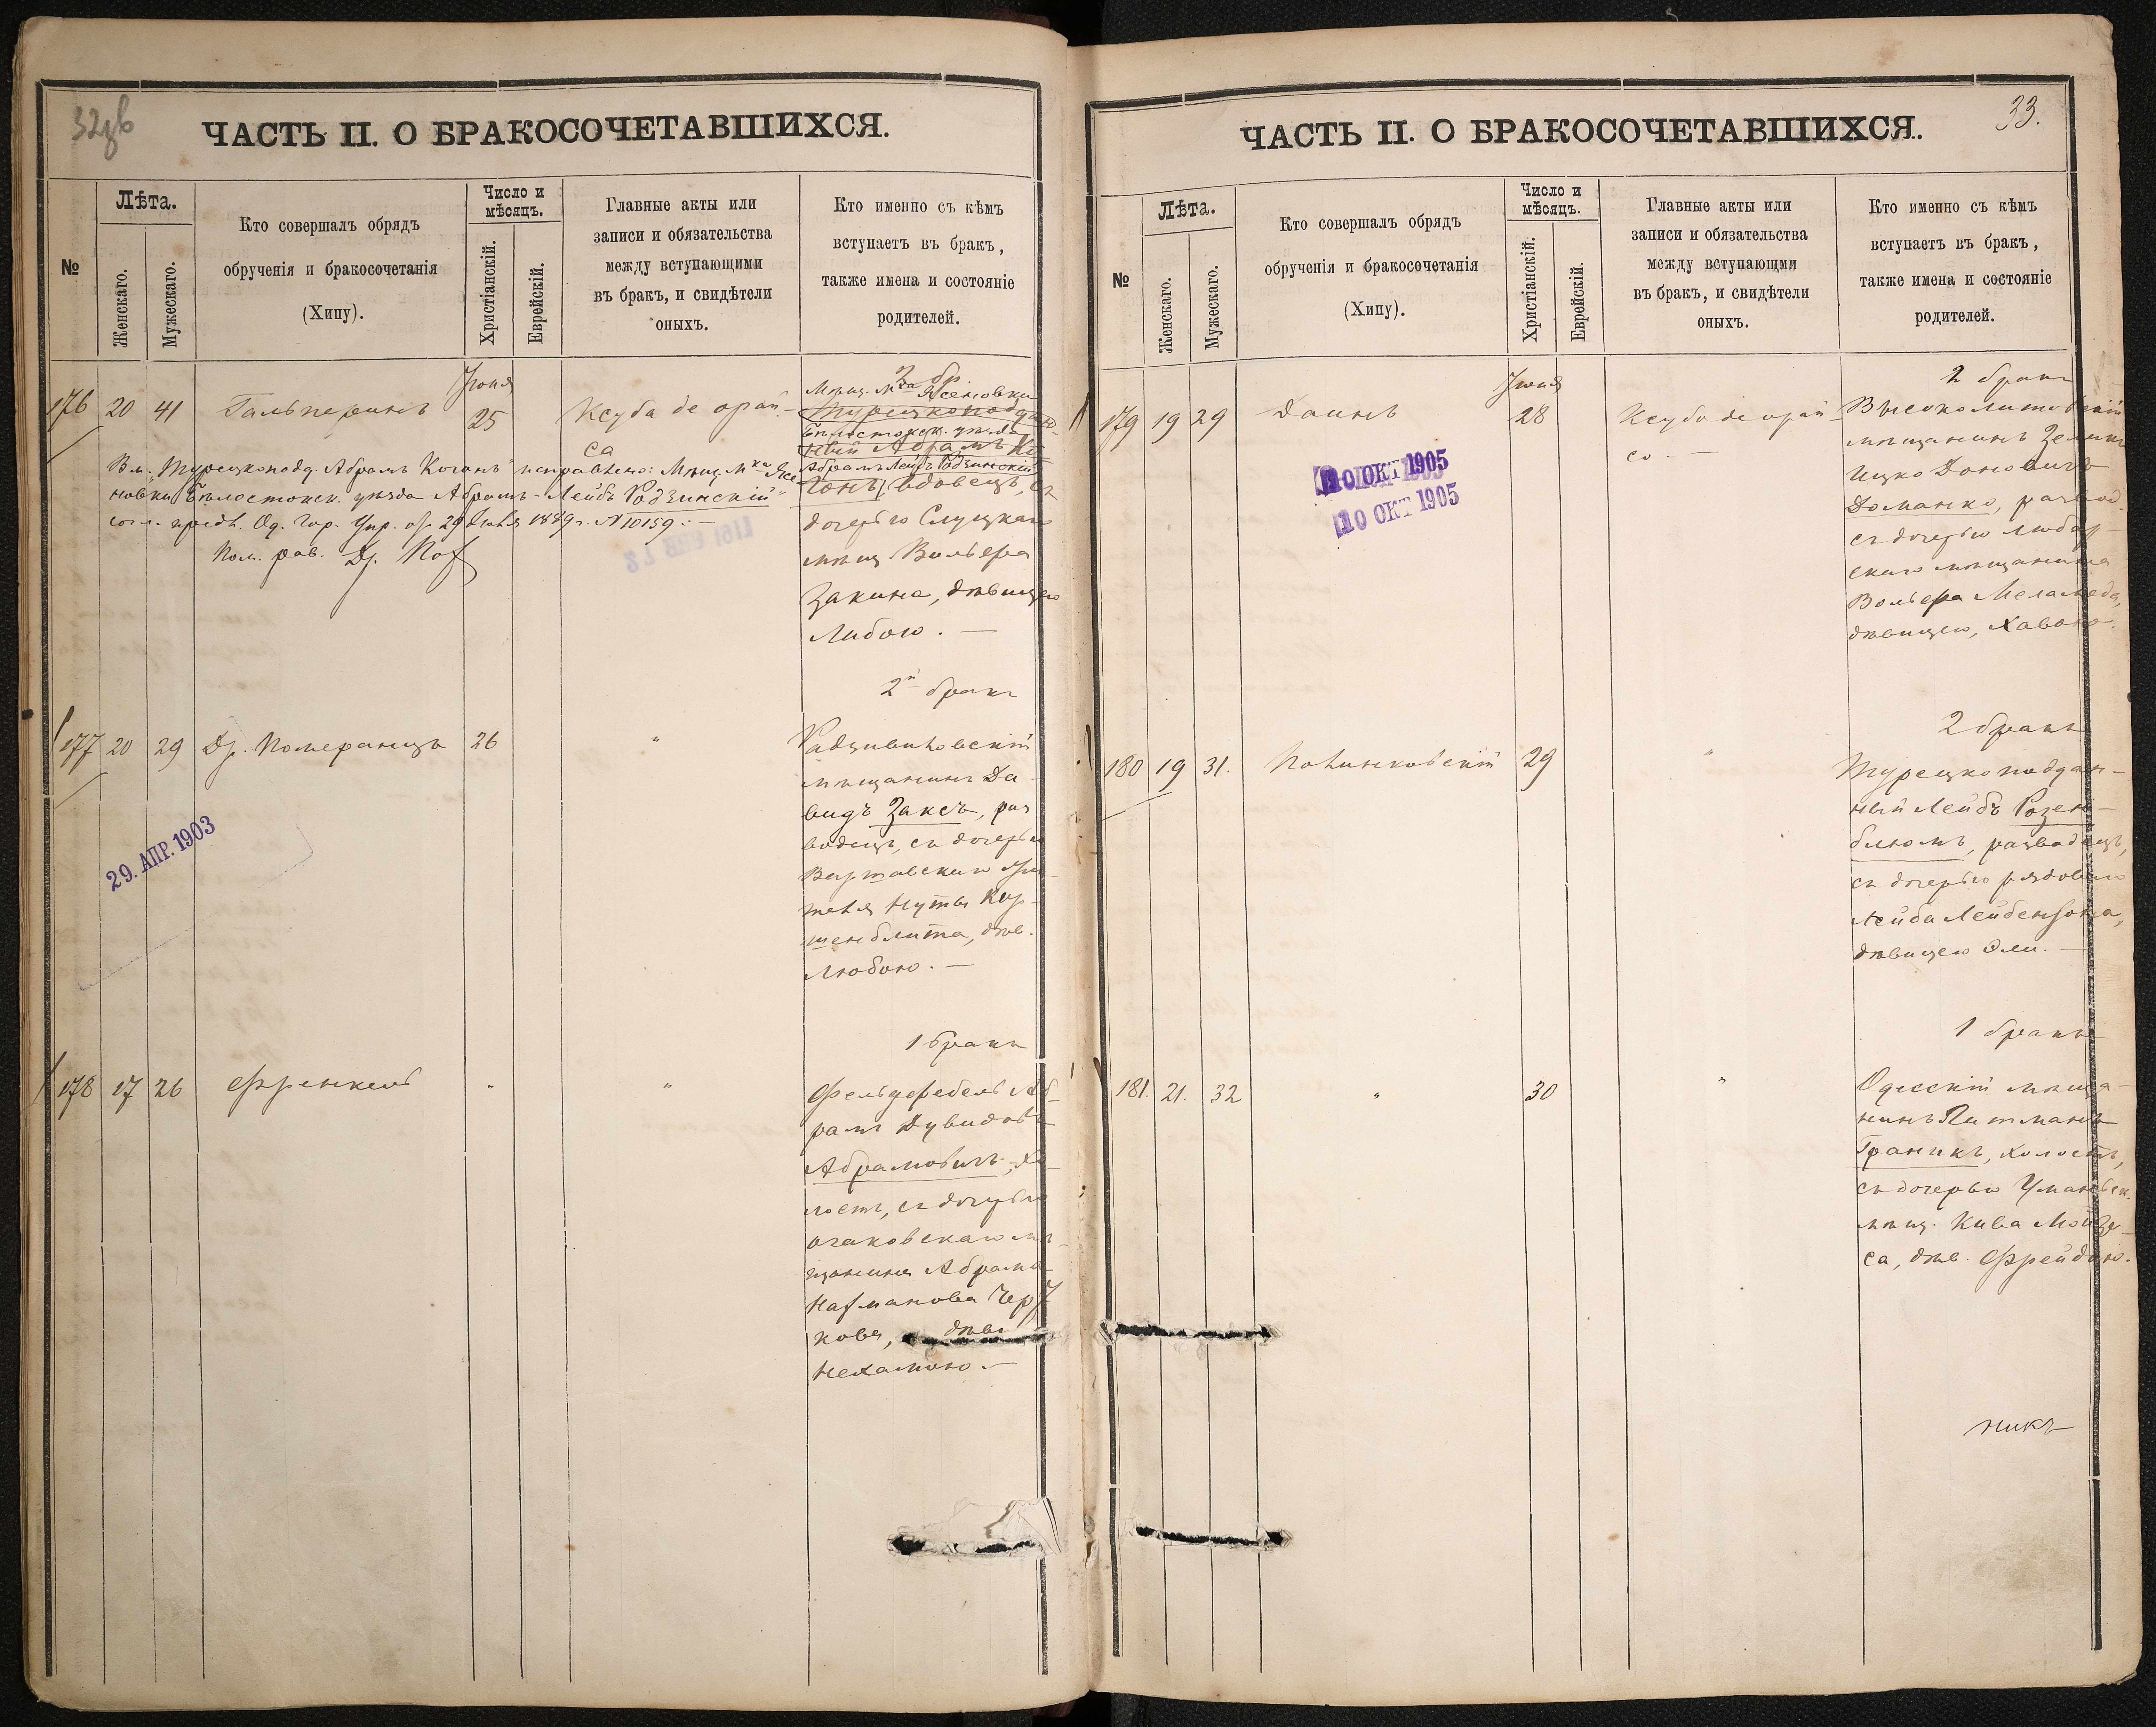 32об
ЧАСТЬ II. О БРАКОСОЧЕТАВШИХСЯ.
№
Лѣта.
Женскаго.
Мужескаго.
Кто совершалъ обрядъ
обрученія и бракосочетанія
(Хипу).
Число и
мѣсяцъ.
Христіанскій.
Еврейскій.
Главные акты или
записи и обязательства
между вступающими
въ бракъ, и свидѣтели
оныхъ.
Кто именно съ кѣмъ
вступаетъ въ бракъ,
также имена и состояніе
родителей.
176 20 41 Гальперинъ
Іюня
25
Ксуба де орай-
са
2 бр.
Мѣщ. м-ка Ясеновки
Турецкоподдан-
Бѣлостокск. уѣзда
ный Абрамъ Ко-
Абрамъ-Лейбъ Родзинскій
ганъ, вдовецъ, съ
дочерью Слуцкаго
мѣщ. Вольфа
Закина, дѣвицею
Либою. —
Вм. "Турецкопод. Абрамъ Коганъ" исправлено: "Мѣщ. м-ка Ясе-
новки Бѣлостокск. уѣзда Абрамъ-Лейбъ Родзинскій"
согл. предп. Од. Гор. Упр. от 29 1889 г. № 10159. —
Пом. рав. Др.
2й бракъ
177 20 29 Др. Померанцъ 26 "
Радзивиловскій
мѣщанинъ Да-
видъ Заксъ, раз
водецъ, съ дочерью
Варшавскаго жи-
теля Нуты Кир-
шенблита, дѣв.
Любою. —
29. АПР. 1903
1 бракъ
178 17 26 Френкель " "
Фельдфебель Аб-
рамъ Дувидовъ
Абрамовичъ, хо-
лостъ, съ дочерью
очаковскаго мѣ-
щанина Абрама
Нахманова Чер
кова, дѣв.
Нехамою. —
33.
ЧАСТЬ II. О БРАКОСОЧЕТАВШИХСЯ.
№
Лѣта.
Женскаго.
Мужескаго.
Кто совершалъ обрядъ
обрученія и бракосочетанія
(Хипу).
Число и
мѣсяцъ.
Христіанскій.
Еврейскій.
Главные акты или
записи и обязательства
между вступающими
въ бракъ, и свидѣтели
оныхъ.
Кто именно съ кѣмъ
вступаетъ въ бракъ,
также имена и состояніе
родителей.
179 19 29 Даинъ
Іюня
28
Ксуба де орай-
са —
2 бракъ
Высоколитовскій
мѣщанинъ Зеликъ
Ицко Доновичъ
Доманко, развод.
съ дочерью Любар-
скаго мѣщанина
Вольфа Меламеда,
дѣвицею, Хавою.
10 ОКТ 1905
10 ОКТ 1905
2 бракъ
180 19 31. Полинковскій 29 "
Турецкоподдан-
ный Лейбъ Розен-
блюмъ, разводецъ,
съ дочерью рядового
Лейба Лейбензона,
дѣвицею Эли. —
1 бракъ
181. 21. 32 " 30 "
Одесскій мѣща-
нинъ Питманъ
Граникъ, холостъ,
съ дочерью Уманьск.
мѣщ. Кива Мойзе-
са, дѣв. Фрейдою.
никъ